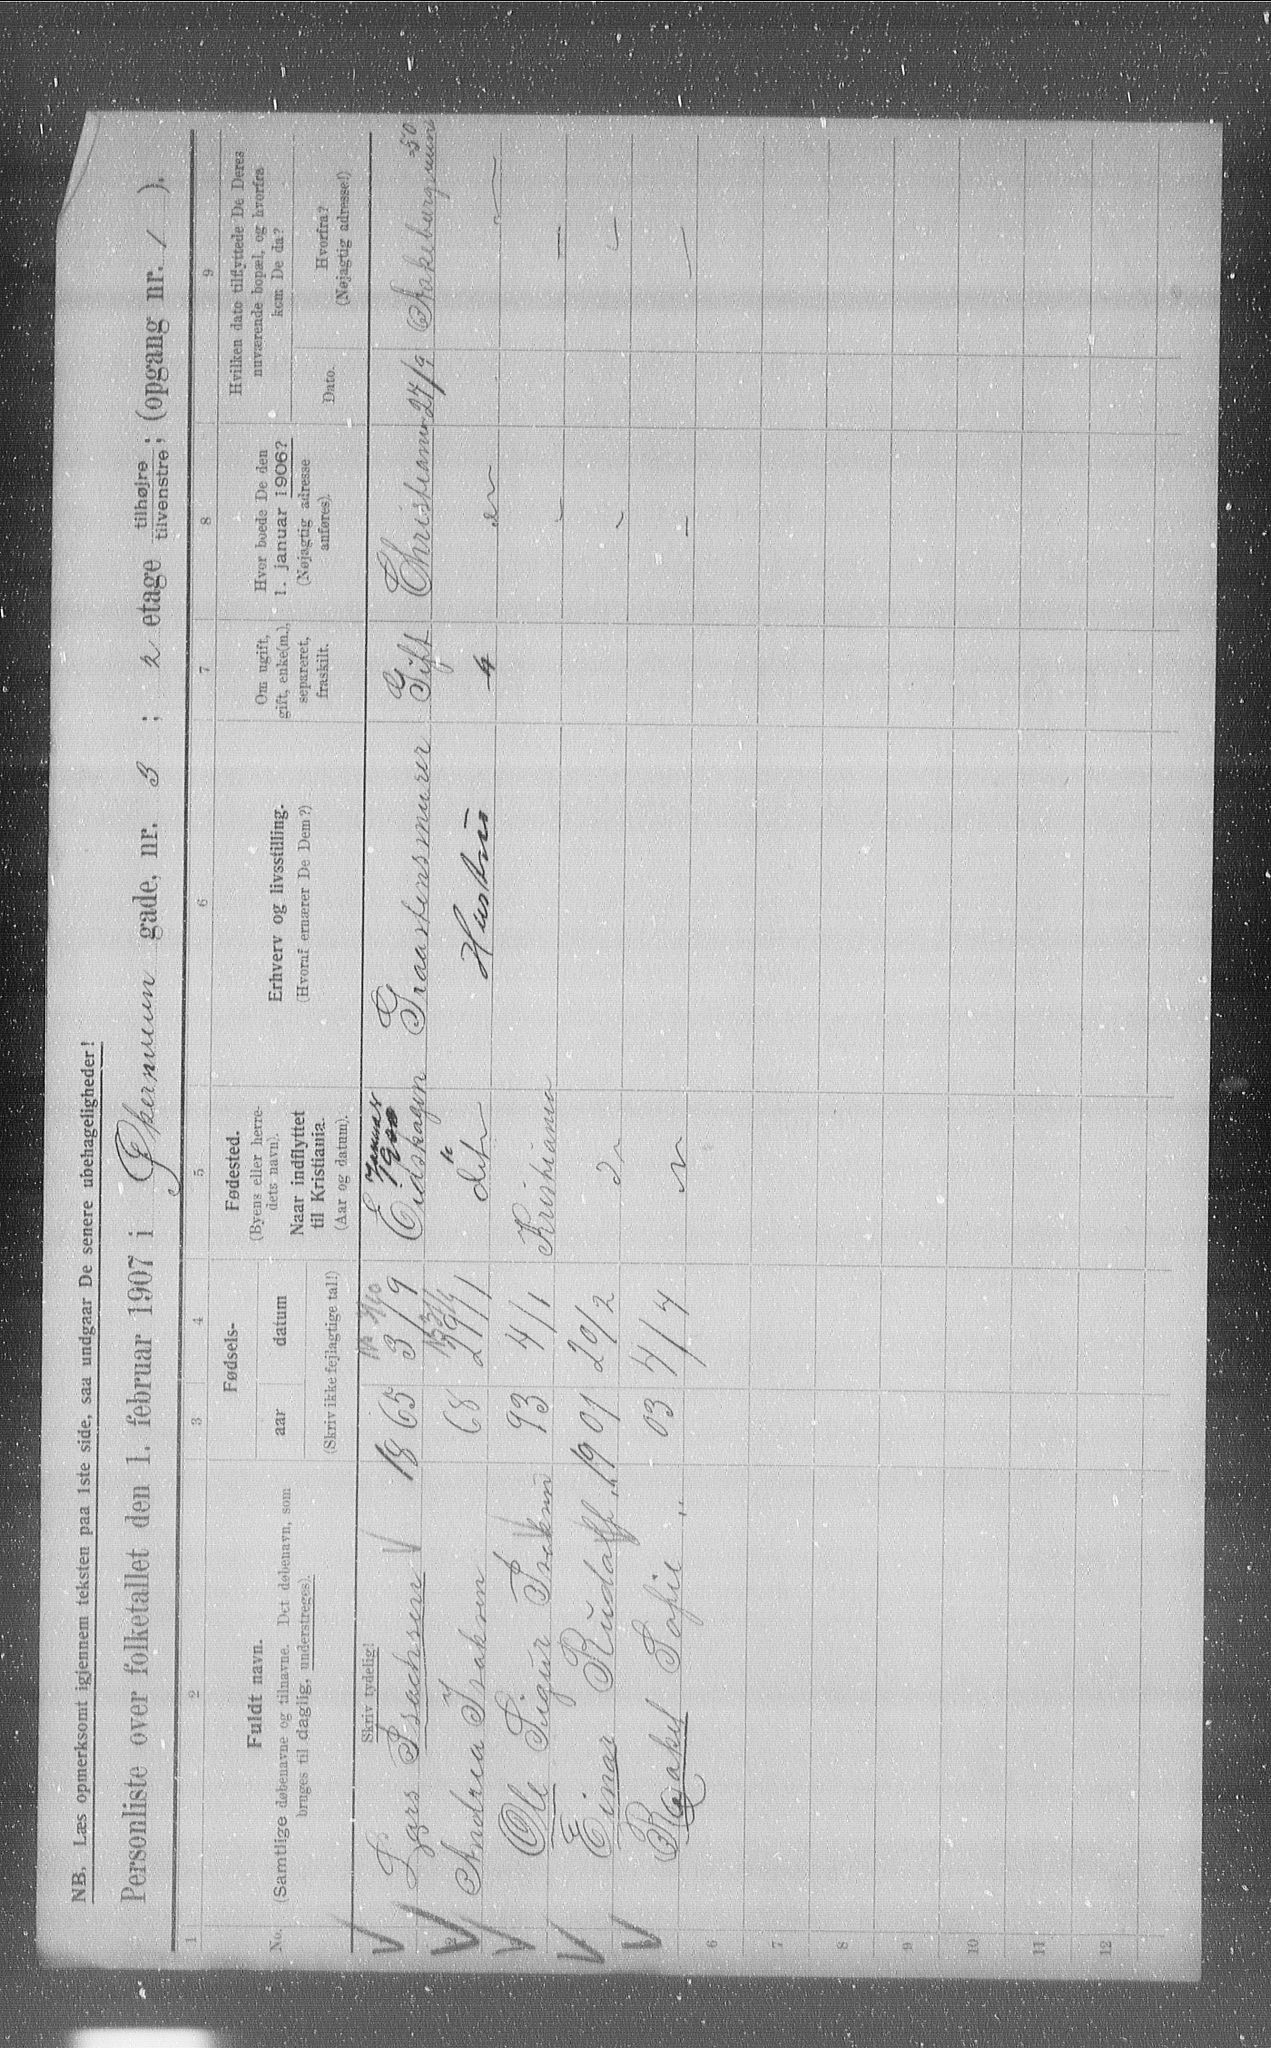 NB. Læs opmerksomt igjennem teksten paa 1ste side, saa undgaar De senere ubehageligheder!
Personliste over folketallet den 1. februar 1907 i Økernveien gade, nr. 3 ; 2 etage tilhøjre tilvenstre ; (opgang nr. 1 ).
1 2 3 4 5 6 7 8 9
No.
Fuldt navn.
(Samtlige døbenavne og tilnavne. Det døbenavn, som
bruges til daglig, understreges).
Fødsels-
aar datum
(Skriv ikke fejlagtige tal!)
Fødested.
(Byens eller herre-
dets navn).
Naar indflyttet
til Kristiania.
(Aar og datum).
Erhverv og livsstilling.
(Hvoraf ernærer De Dem?)
Om ugift,
gift, enke(m.),
separeret,
fraskilt.
Hvor boede De den
1. januar 1906?
(Nøjagtig adresse
anføres).
Hvilken dato tilflyttede De Deres
nuværende bopæl, og hvorfra
kom De da?
Dato.
Hvorfra?
(Nøjagtig adresse!)
Skriv tydelig!
Januar 1900
Lars Isachsen 1865 3/9 Eidskogen Graastensmurer Gift 27/9
2 Andrea Isaksen 68 29/1 Hustru
Ole Sigur Isaksen 93 4/1 Kristiania
Einar Rudolf " 1901 20/2
Rakel Sofie " 03 4/4
6
7
8
9
10
11
12